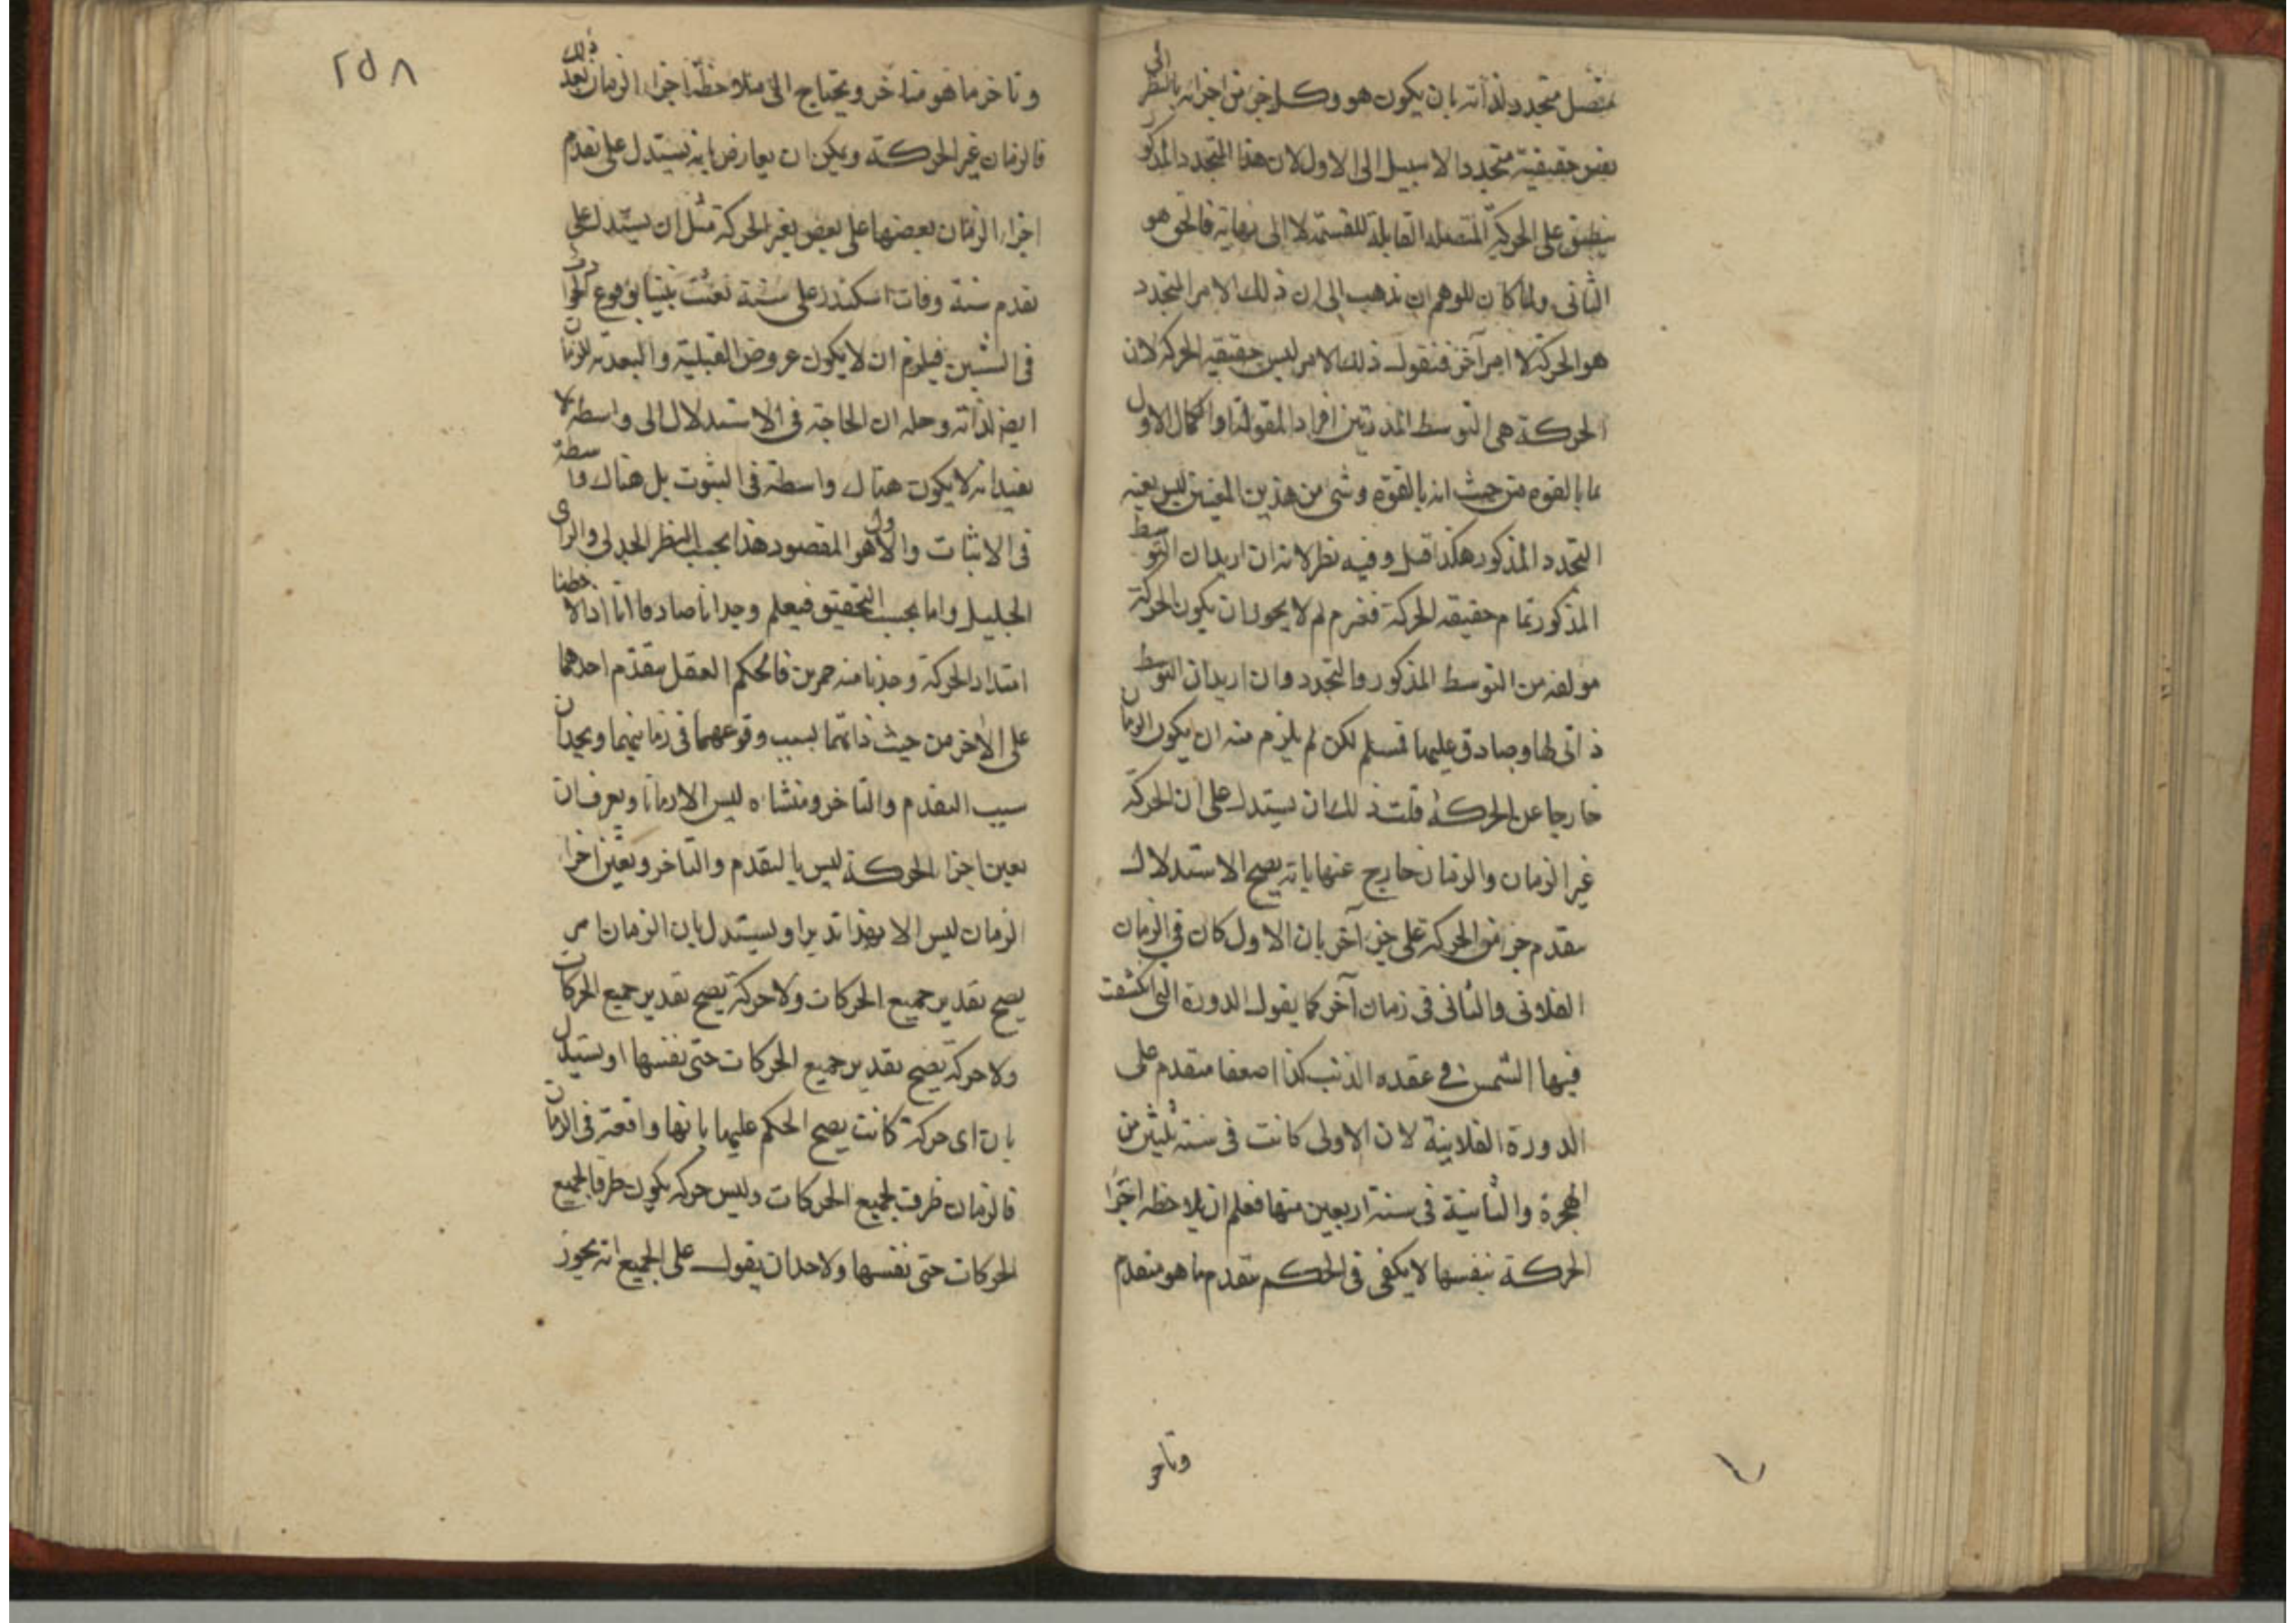 متصل متجدد لذاته بان يكون هو وكل جزء من اجزائه بالنظر الى
نفس حقيقية متجددا لا سبيل الى الاول لان هذا المتجدد المذكور
ينطبق على الحركة المتصلة القابلة للقسمة لا الى نهاية فالحق هو
الثانى ولما كان للوهم ان يذهب الى ان ذلك الامر المتجدد
هو الحركة لا امر آخر فنقول ذلك الامر ليس حقيقة الحركة لان
الحركة هى التوسط المذ بين افراد المقولة او الكمال الاول
لما بالقوه من حيث انه بالقوة وشى من هذين المعنيين ليس بعينه
التجدد المذكور هكذا قيل وفيه نظر لانه ان اريد ان التوسط
المذكور تمام حقيقه الحركة فغير م لم لا يجوز ان يكون الحركة
مولفه من التوسط المذكور والتجدد وان اريد ان التوسط
ذاتى لها وصادق عليها فمسلم لكن لم يلزم منه ان يكون الزمان
خارجا عن الحركة قلت ذلك ان يستدل على ان الحركة
غير الزمان والزمان خارج عنها بانه يصح الاستدلال
بتقدم جزء من الحركة على جزء آخر بان الاول كان فى الزمان
الفلانى والثانى فى زمان آخر كما يقول الدورة التى انكسفت
فيها الشمس فى عقده الذنب كذا اصعفا متقدم على
الدورة الفلانية لان الاولى كانت فى سنة ثلثين من
الهجرة والثانية فى سنة اربعين منها فعلم ان ملاحظه اجزا
الحركة بنفسها لا يكفى فى الحكم بتقدم ما هو متقدم
وتاخر
٢٥٨
وتاخر ما هو متاخر ويحتاج الى ملاحظة اجزاء الزمان بعد ذلك
فالزمان غير الحركة ويمكن ان يعارض بانه يستدل على تقدم
اجزاء الزمان بعضها على بعض بغير الحركة مثل ان يستدل على
تقدم سنة وفات اسكندر على سنة بعثت نبينا بوقوع الحوادث
فى السنتين فيلزم ان لا يكون عروض القبلية والبعدية للزمان
ايضا لذاته وحله ان الحاجة فى الاستدلال الى واسطة لا
يفيد انه لا يكون هناك واسطة فى الثبوت بل هناك واسطة
فى الاثبات والاول هو المقصود هذا بحسب النظر الجدلى والراى
الجليل واما بحسب التحقيق فيعلم وجدانا صادقا انا اذا لاحظنا
امتداد الحركة وجدنا منه جزءين فالحكم العقل بتقدم احدهما
على الآخر من حيث ذاتهما بسبب وقوعهما فى زمانيهما ويجد ان
سبب التقدم والتاخر ومنشاه ليس الا زمانا ويعرف ان
تعين اجزاء الحركة ليس بالتقدم والتاخر وتعين اجزاء
الزمان ليس الا بهذا تدبر او يستدل بان الزمان امر
يصح تقدير جميع الحركات ولا حركة يصح تقدير جميع الحركات
ولا حركة يصح تقدير جميع الحركات حتى نفسها او يستدل
بان اى حركة كانت يصح الحكم عليها بانها واقعة فى الزمان
فالزمان ظرف لجميع الحركات وليس حركه يكون ظرفا لجميع
الحركات حتى نفسها ولاحد ان يقول على الجميع انه يجوز